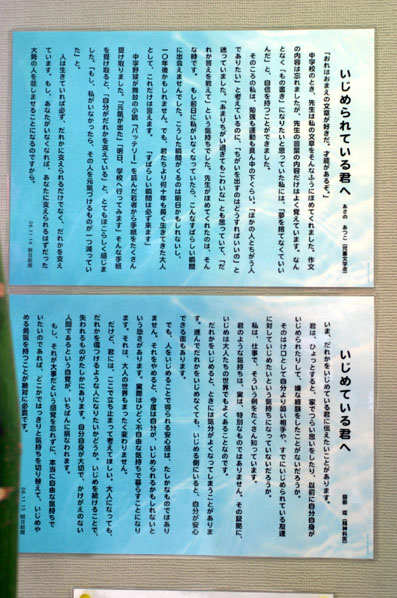 いじめられている君へ
あさの あつこ（児童文学者）
「おれはおまえの文章が好きだ。才能があるぞ。」
中学校のとき、先生は私の文章をそんなようにほめてくれました。作文
の内容は忘れましたが、先生の言葉の内容だけはよく覚えています。なん
となく「もの書き」になりたいと思っていた私には、「夢を捨てなくていい
んだ」と、自信を持つことができました。
そのころの私は、勉強も運動も真ん中の下くらい。「ほかの人とちがう人
でありたい」と考えているのに、ちがいを出すのはどうすればいいの」と
迷っていました。「あまりちがい過ぎてもこわいな」とも思っていて、「だ
れか答えを教えて」という気持ちでした。先生がほめてくれたのは、そん
な時です。もし前日に私がいなくなっていたら、こんなすばらしい瞬間
に出会えませんでした。こうした瞬間がくるのは明日かもしれないし、
一〇年後かもしれません。でも、君たちより何十年も長く生きてきた大人
として、これだけは言えます。「すばらしい瞬間は必ず来ます」
中学野球が舞台の小説「バッテリー」を読んだ若者から手紙をたくさん
受け取りました。「元気が出た」「明日、学校へ行ってみます」そんな手紙
を受け取ると、「自分がだれかを支えている」と、とてもほこらしく感じま
した。「もし、私がいなかったら、その人を元気づけるものが一つ減ってい
た」と。
人は生きていれば必ず、だれかに支えられるだけでなく、だれかを支え
ています。もし、あなたがいなくなれば、あなたに支えられるはずだった
大勢の人を悲しませることになるのですから。
06.11.14 朝日新聞
いじめている君へ
（精神科医）
いま、だれかをいじめている君に伝えたいことがあります。
君は、ひょっとすると、家でつらい思いをしたり、以前に自分自身が
いじめられたりして、嫌な経験をしたことがないだろうか。
そのはけ口として自分より弱い相手や、すでにいじめられている友達
に対していじめたいという気持ちになっていないだろうか。
私は、仕事で、そういう例をたくさん知っています。
君のような気持ちは、実は、特別なものではありません。その証拠に、
いじめは大人たちの世界でもよくあることなのです。
だれかをいじめると、ときには気分がよくなってしまうことがありま
す。進んでだれかをいじめなくても、いじめる側にいると、自分が安心
できる面もあります。
でも、人をいじめることで得られる安心感は、たしかなものではあり
ません。それをやめると、今度は自分が、いじめられるかもしれないと
いう恐さがあります。実際はひどく不自由な気持ちで暮らすことになり
ます。それは、大人の世界もまったく変わりません。
だけど、君には、ここで立ち止まって考えてほしい。大人になっても、
だれかを傷つけるような人になりたいかどうか。いじめを続けることで、
失われるものがたしかにあります。自分自身が大切で、かけがえのない
人間であるという自覚が、いちばんに損なわれます。
もし、それが大事だという感覚を忘れずに、本当に自由な気持ちで
いたいのであれば、どこかではっきりと気持ちを切り替えて、いじめや
める勇気を持つことが絶対に必要です。
06.11.15 朝日新聞